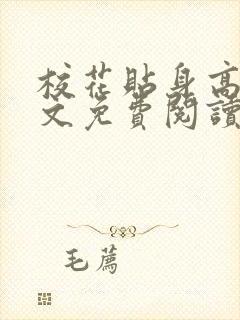 校花貼身高
文免費閱讀
毛薦